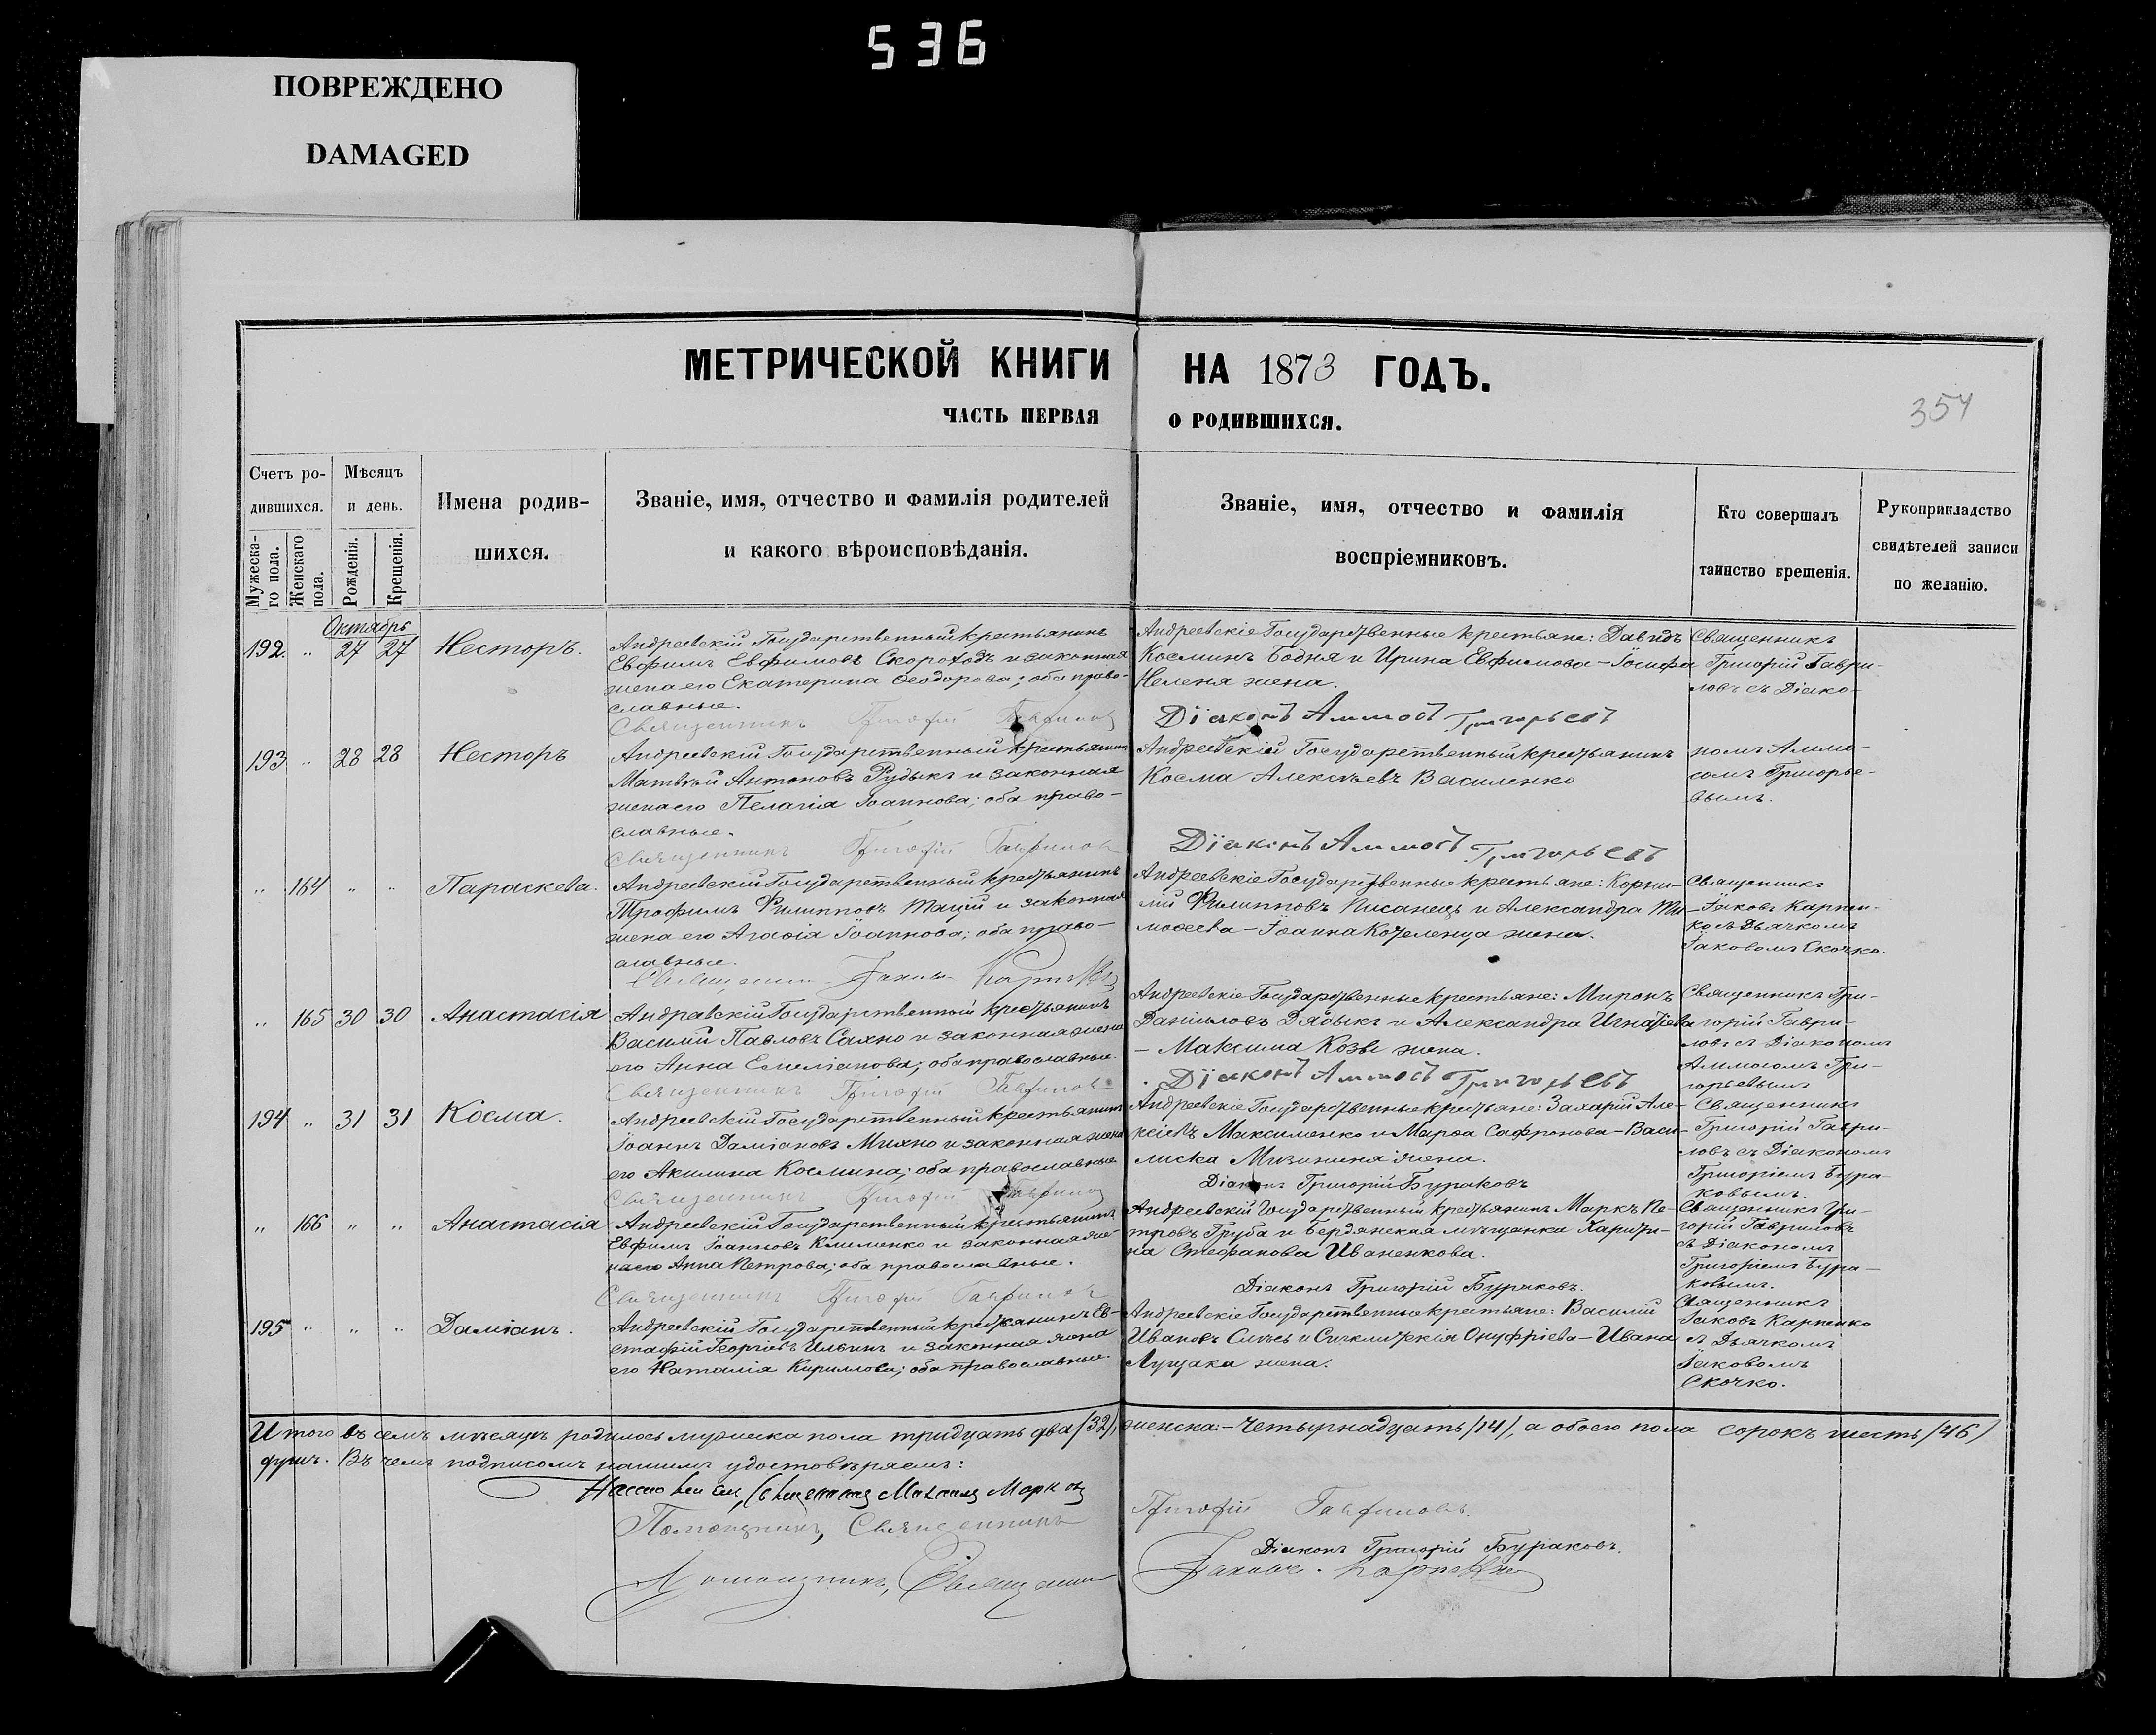 536
ПОВРЕЖДЕНО
DAMAGED
МЕТРИЧЕСКОЙ КНИГИ НА 1873 ГОДЪ.
ЧАСТЬ ПЕРВАЯ О РОДИВШИХСЯ.
354
Счетъ ро-
дившихся.
Мужеска-
го пола.
Женскаго
пола.
Мѣсяцъ
и день.
Рожденія.
Крещенія.
Имена родив-
шихся.
Званіе, имя, отчество и фамилія родителей
и какого вѣроисповѣданія.
Званіе, имя, отчество и фамилія
воспріемниковъ.
Кто совершалъ
таинство крещенія.
Рукоприкладство
свидѣтелей записи
по желанію.
Октябрь
192. " 27 27 Несторъ.
Андреевскій Государственный крестьянинъ
Евфимъ Евфимовъ Скороходъ и законная
жена его Екатерина Ѳеодорова; оба право-
славные.
Священникъ Григорій Гавриловъ
Андреевскіе Государственные крестьяне: Давидъ
Косминъ Бодня и Ирина Евфимова - Іосифа
Неленя жена.
Діаконъ Аммосъ Григорьевъ
Священникъ
Григорій Гаври-
ловъ съ Діако-
номъ Аммо-
сомъ Григорье-
вымъ.
193 " 28 28 Несторъ
Андреевскій Государственный крестьянинъ
Матвѣй Антоновъ Рудыкъ и законная
жена его Пелагія Іоаннова; оба право-
славные.
Священникъ Григорій Гавриловъ
Андреевскій Государственный крестьянинъ
Косма Алексѣевъ Василенко
Діаконъ Аммосъ Григорьевъ
" 164 " " Параскева.
Андреевскій Государственный крестьянинъ
Трофимъ Филипповъ Тацій и законная
жена его Агафія Іоаннова; оба право-
славные.
Священникъ Іаковъ Карпенко
Андреевскіе Государственные крестьяне: Корни-
лій Филипповъ Писанецъ и Александра Ти-
мофеева - Іоанна Кофеленца жена.
Священникъ
Іаковъ Карпен-
ко съ Дьячкомъ
Іаковомъ Скочко.
" 165 30 30 Анастасія
Андреевскій Государственный крестьянинъ
Василій Павловъ Сахно и законная жена
его Анна Емеліанова; оба православные.
Священникъ Григорій Гавриловъ
Андреевскіе Государственные крестьяне: Миронъ
Даніиловъ Дядыкъ и Александра Игнатіева
- Максима Козы жена.
Діаконъ Аммосъ Григорьевъ
Священникъ Гри-
горій Гаври-
ловъ съ Діакономъ
Аммосомъ Гри-
горьевымъ
194 " 31 31 Косма.
Андреевскій Государственный крестьянинъ
Іоаннъ Даміановъ Михно и законная жена
его Акилина Космина; оба православные
Священникъ Григорій Гавриловъ
Андреевскіе Государственные крестьяне: Захарій Але-
ксіевъ Максименко и Марфа Сафронова - Васи-
лиска Мизинина жена.
Діаконъ Григорій Бураковъ
Священникъ
Григорій Гаври-
ловъ съ Діакономъ
Григоріемъ Бура-
ковымъ.
" 166 " " Анастасія
Андреевскій Государственный крестьянинъ
Евфимъ Іоанновъ Клименко и законная же-
на его Анна Петрова; оба православные.
Священникъ Григорій Гавриловъ
Андреевскій Государственный крестьянинъ Маркъ Пе-
тровъ Груба и Бердянская мѣщанка Харити-
на Стефанова Иваненкова.
Діаконъ Григорій Бураковъ.
Священникъ Гри-
горій Гавриловъ
съ Діакономъ
Григоріемъ Бура-
ковымъ.
195 " " " Даміанъ.
Андреевскій Государственный крестьянинъ Ев-
стафій Георгіевъ Ильинъ и законная жена
его Наталія Кирилова; оба православные.
Андреевскіе Государственные крестьяне: Василій
Ивановъ Сиысь и Сигклитикія Онуфріева - Ивана
Лущака жена.
Священникъ
Іаковъ Карпенко
съ Дьячкомъ
Іаковомъ
Скочко.
Итого въ семъ мѣсяцѣ родилось мужеска пола тридцать два /32/, женска - четырнадцать /14/, а обоего пола сорокъ шесть /46/
душъ. Въ чемъ подписомъ нашимъ удостовѣряемъ:
Настоятель, Священникъ Михаилъ Марковъ
Помощникъ, Священникъ Григорій Гавриловъ.
Діаконъ Григорій Бураковъ.
Помощникъ, Священникъ Іаковъ Карпенко